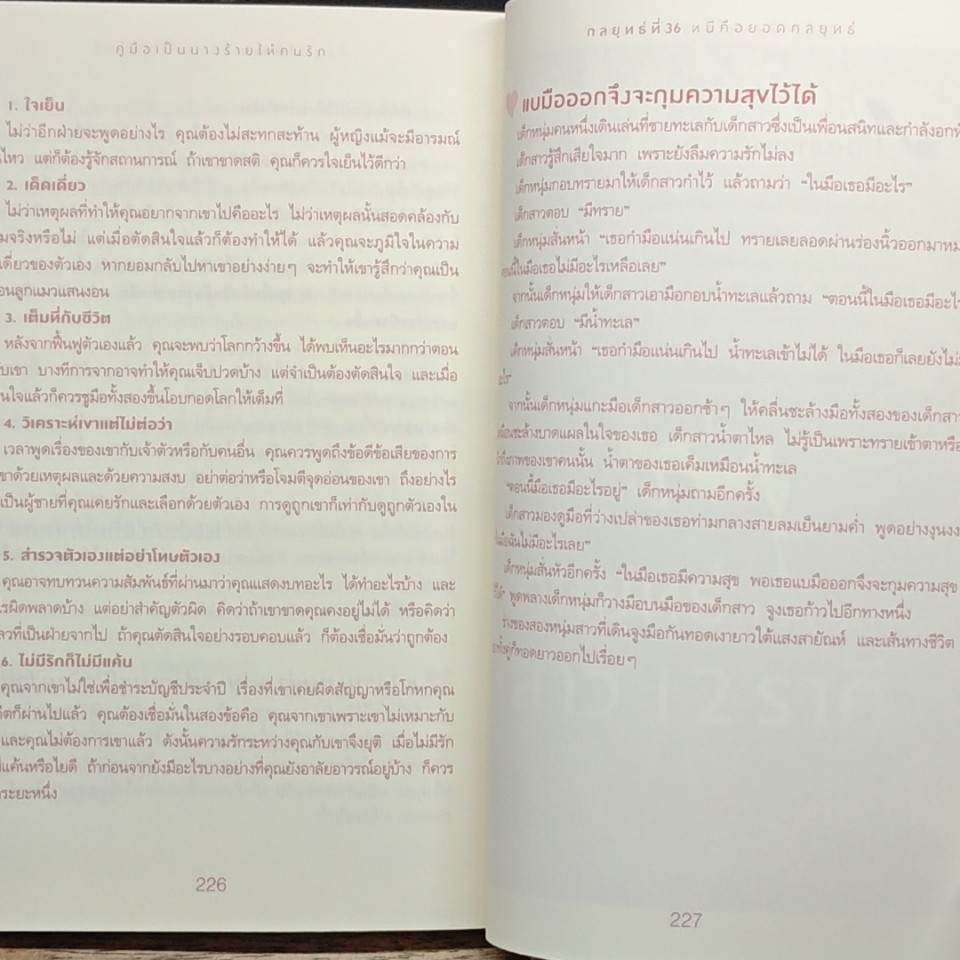 คู่มือเป็นนางร้ายให้คนรัก
1. ใจเย็น
ไม่ว่าอีกฝ่ายจะพูดอย่างไร คุณต้องไม่สะทกสะท้าน ผู้หญิงแม้จะมีอารมณ์
ไหว แต่ก็ต้องรู้จักสถานการณ์ ถ้าเขาขาดสติ คุณก็ควรใจเย็นไว้ดีกว่า
2. เด็ดเดี่ยว
ไม่ว่าเหตุผลที่ทำให้คุณอยากจากเขาไปคืออะไร ไม่ว่าเหตุผลนั้นสอดคล้องกับ
มจริงหรือไม่ แต่เมื่อตัดสินใจแล้วก็ต้องทำให้ได้ แล้วคุณจะภูมิใจในความ
เดี่ยวของตัวเอง หากยอมกลับไปหาเขาอย่างง่ายๆ จะทำให้เขารู้สึกว่าคุณเป็น
อนลูกแมวแสนงอน
3. เต็มที่กับชีวิต
หลังจากฟื้นฟูตัวเองแล้ว คุณจะพบว่าโลกกว้างขึ้น ได้พบเห็นอะไรมากกว่าตอน
บเขา บางทีการจากอาจทำให้คุณเจ็บปวดบ้าง แต่จำเป็นต้องตัดสินใจ และเมื่อ
นใจแล้วก็ควรชูมือทั้งสองขึ้นโอบกอดโลกให้เต็มที่
4. วิเคราะห์เขาแต่ไม่ต่อว่า
เวลาพูดเรื่องของเขากับเจ้าตัวหรือกับคนอื่น คุณควรพูดถึงข้อดีข้อเสียของการ
ขาด้วยเหตุผลและด้วยความสงบ อย่าต่อว่าหรือโจมตีจุดอ่อนของเขา ถึงอย่างไร
เป็นผู้ชายที่คุณเคยรักและเลือกด้วยตัวเอง การดูถูกเขาก็เท่ากับดูถูกตัวเองใน
5. สำรวจตัวเองแต่อย่าโทษตัวเอง
คุณอาจทบทวนความสัมพันธ์ที่ผ่านมาว่าคุณแสดงบทอะไร ได้ทำอะไรบ้าง และ
ไรผิดพลาดบ้าง แต่อย่าสำคัญตัวผิด คิดว่าถ้าเขาขาดคุณคงอยู่ไม่ได้ หรือคิดว่า
ลวที่เป็นฝ่ายจากไป ถ้าคุณตัดสินใจอย่างรอบคอบแล้ว ก็ต้องเชื่อมั่นว่าถูกต้อง
6. ไม่มีรักก็ไม่มีแค้น
คุณจากเขาไม่ใช่เพื่อชำระบัญชีประจำปี เรื่องที่เขาเคยผิดสัญญาหรือโกหกคุณ
ีตก็ผ่านไปแล้ว คุณต้องเชื่อมั่นในสองข้อคือ คุณจากเขาเพราะเขาไม่เหมาะกับ
และคุณไม่ต้องการเขาแล้ว ดังนั้นความรักระหว่างคุณกับเขาจึงยุติ เมื่อไม่มีรัก
มีแค้นหรือไยดี ถ้าก่อนจากยังมีอะไรบางอย่างที่คุณยังอาลัยอาวรณ์อยู่บ้าง ก็ควร
ระยะหนึ่ง
226
กลยุทธ์ที่ 36 หนีคือยอดกลยุทธ์
แบมือออกจึงจะกุมความสุขไว้ได้
เด็กหนุ่มคนหนึ่งเดินเล่นที่ชายทะเลกับเด็กสาวซึ่งเป็นเพื่อนสนิทและกำลังอกหั
เด็กสาวรู้สึกเสียใจมาก เพราะยังลืมความรักไม่ลง
เด็กหนุ่มกอบทรายมาให้เด็กสาวกำไว้ แล้วถามว่า “ในมือเธอมีอะไร”
เด็กสาวตอบ “มีทราย”
เด็กหนุ่มสั่นหน้า “เธอกำมือแน่นเกินไป ทรายเลยลอดผ่านร่องนิ้วออกมาหม
ตอนนี้ในมือเธอไม่มีอะไรเหลือเลย”
จากนั้นเด็กหนุ่มให้เด็กสาวเอามือกอบน้ำทะเลแล้วถาม “ตอนนี้ในมือเธอมีอะไร
เด็กสาวตอบ “มีน้ำทะเล”
เด็กหนุ่มสั่นหน้า “เธอกำมือแน่นเกินไป น้ำทะเลเข้าไม่ได้ ในมือเธอก็เลยยังไม่มี
อะไร”
จากนั้นเด็กหนุ่มแกะมือเด็กสาวออกช้าๆ ให้คลื่นชะล้างมือทั้งสองของเด็กสาว
เหมือนชะล้างบาดแผลในใจของเธอ เด็กสาวน้ำตาไหล ไม่รู้เป็นเพราะทรายเข้าตาหรือ
ภาพของเขาคนนั้น น้ำตาของเธอเค็มเหมือนน้ำทะเล
“ตอนนี้มือเธอมีอะไรอยู่” เด็กหนุ่มถามอีกครั้ง
เด็กสาวมองดูมือที่ว่างเปล่าของเธอท่ามกลางสายลมเย็นยามค่ำ พูดอย่างงุนงง
ในมือฉันไม่มีอะไรเลย”
เด็กหนุ่มสั่นหัวอีกครั้ง “ในมือเธอมีความสุข พอเธอแบมือออกจึงจะกุมความสุข
ได้” พูดพลางเด็กหนุ่มก็วางมือบนมือของเด็กสาว จูงเธอก้าวไปอีกทางหนึ่ง
ร่างของสองหนุ่มสาวที่เดินจูงมือกันทอดเงายาวใต้แสงสายัณห์ และเส้นทางชีวิต
ทั้งคู่ก็ทอดยาวออกไปเรื่อยๆ
227